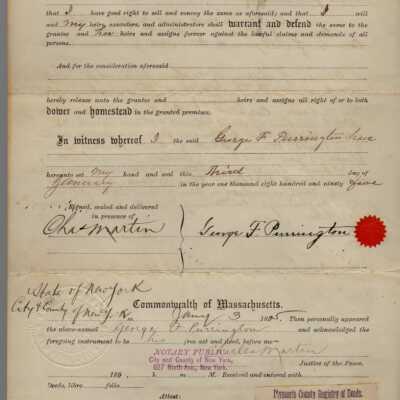 that I have good right to sell and convey the same as aforesaid; and that I will
and my heirs, executors, and administrators shall warrant and defend the same to the
grantee and her heirs and assigns forever against the lawful claims and demands of all
persons.
And for the consideration aforesaid
hereby release unto the grantee and heirs and assigns all right of or to both
dower and homestead in the granted premises.
In witness whereof I the said George F. Purrington
hereunto set my hand and seal this Third day of
January in the year one thousand eight hundred and ninety five
Signed, sealed and delivered
in presence of
Chas Martin
George F. Purrington
State of New York
City & County of New York
Commonwealth of Massachusetts.
Jany 3 1895 Then personally appeared
the above-named George F. Purrington and acknowledged the
foregoing instrument to be his free act and deed, before me—
NOTARY PUBLIC Charles Martin
City and County of New York Justice of the Peace.
627 Ninth Ave., New York.
189 . M. Received and entered with
Deeds, libro folio
Plymouth County Registry of Deeds.